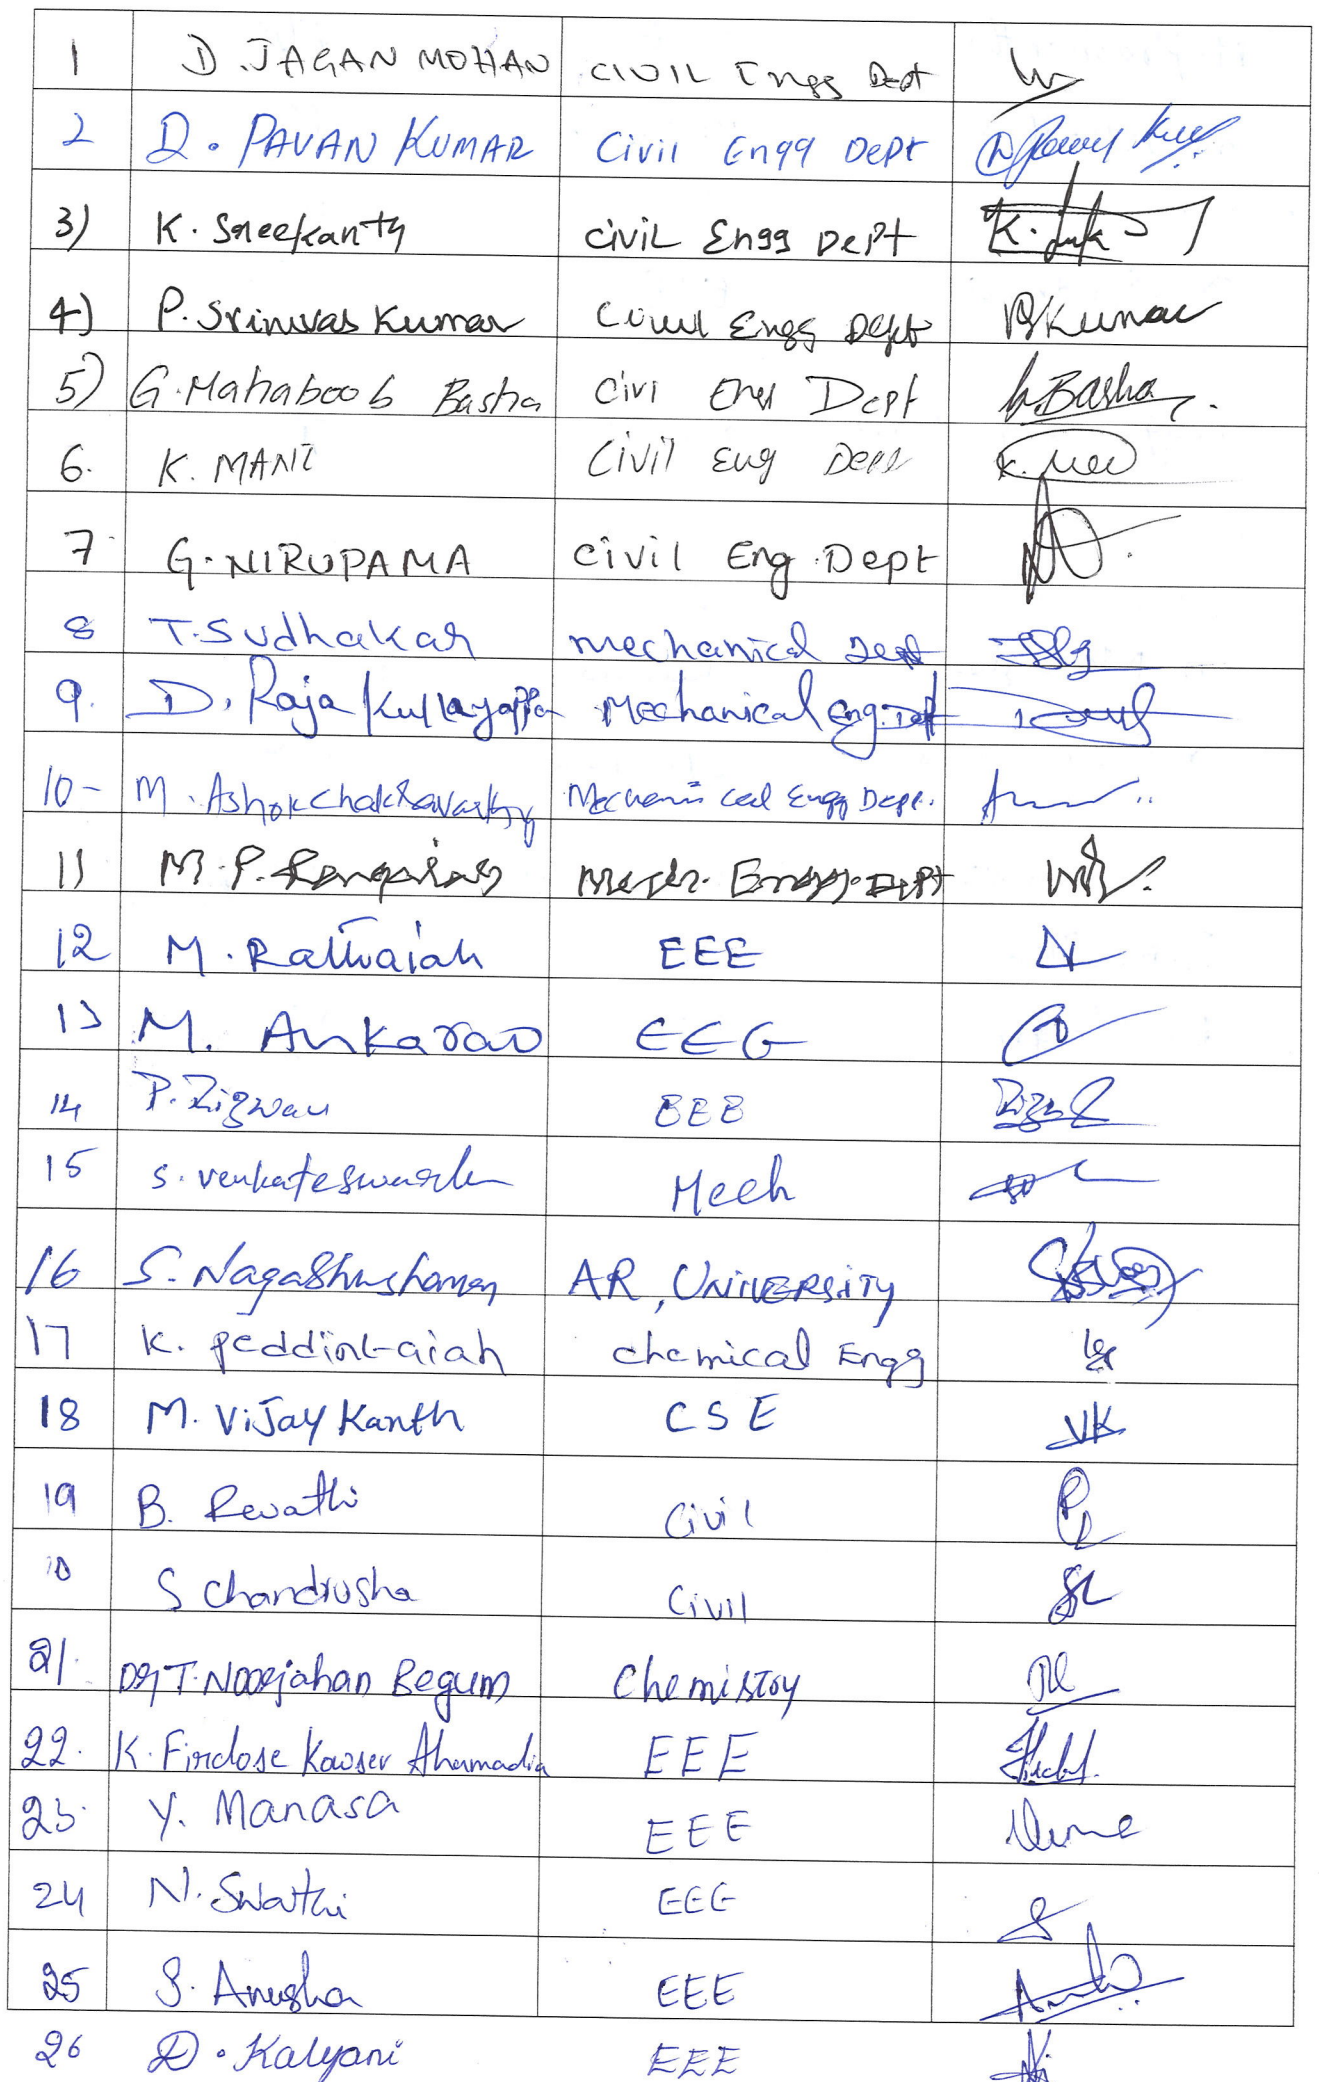 1 D. JAGAN MOHAN CIVIL Engg Dept
2 D. PAVAN KUMAR Civil Engg Dept
3) K. Sreekanth CIVIL Engg Dept K.
4) P. Srinivas Kumar Civil Engg Dept PSKumar
5) G. Mahaboob Basha Civi Eng Dept G.Basha
6. K. MANI Civil Eng Dept K.
7 G. NIRUPAMA Civil Eng. Dept
8 T. Sudhakar mechanical Dept
9. D. Raja Kullayappa Mechanical Eng. Dept
10- M. Ashok Chakravarthy Mechanical Engg Dept.
11 M. P. Mech. Engg. DEPT
12 M. Rattaiah EEE
13 M. Ankarao EEE
14 P. Rizwan EEE
15 S. Venkateswarlu Mech
16 S. Nagabhushanam AR, UNIVERSITY
17 K. Peddintaiah chemical Engg
18 M. Vijay Kanth CSE VK
19 B. Revathi Civil
S Chandrusha Civil
21. Dr T. Noorjahan Begum Chemistry
22. K. Firdose Kowser Ahamadia EEE
23. Y. Manasa EEE
24 N. Swathi EEE
25 S. Anusha EEE
26 D. Kalyani EEE